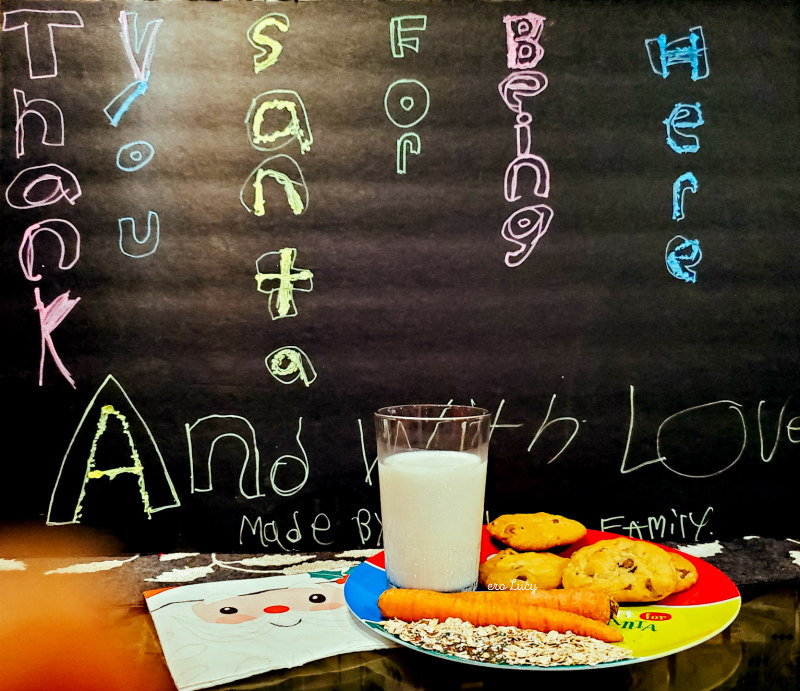 Thank You Santa For Being Here
And With Love
Made By FAMiry.
ero Lucy
for